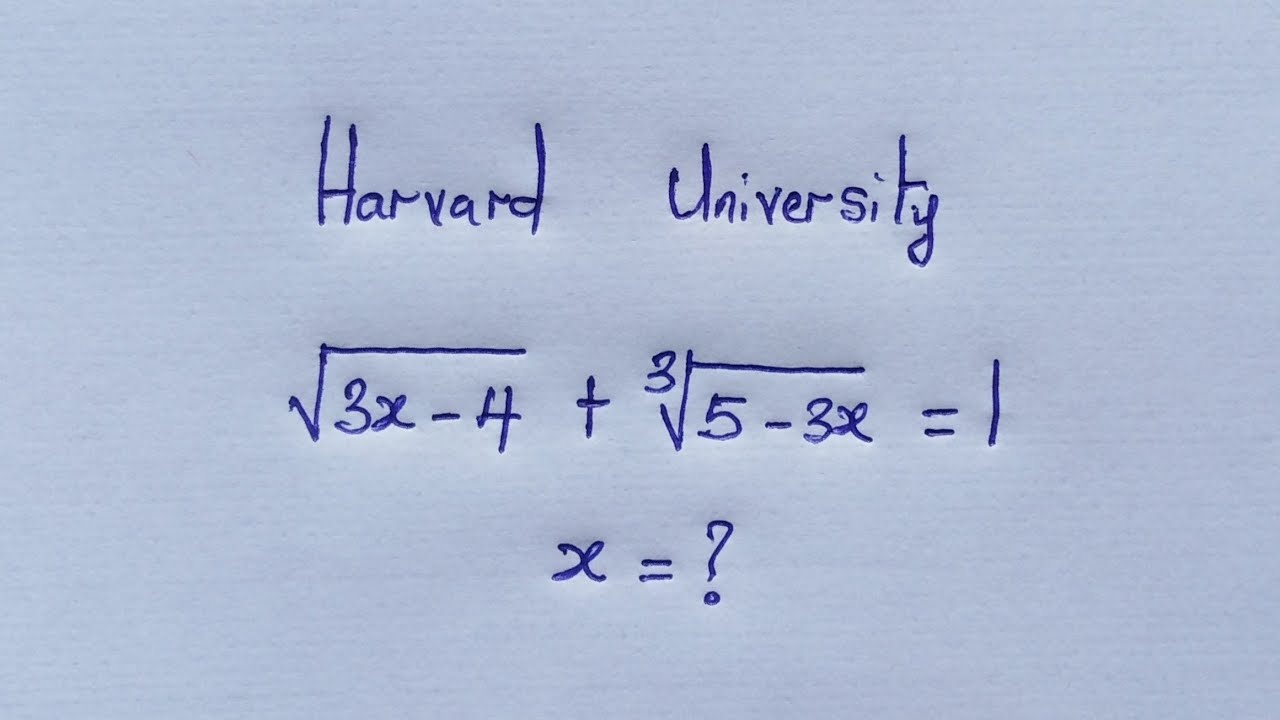 Harvard University
√(3x - 4) + ∛(5 - 3x) = 1
x = ?